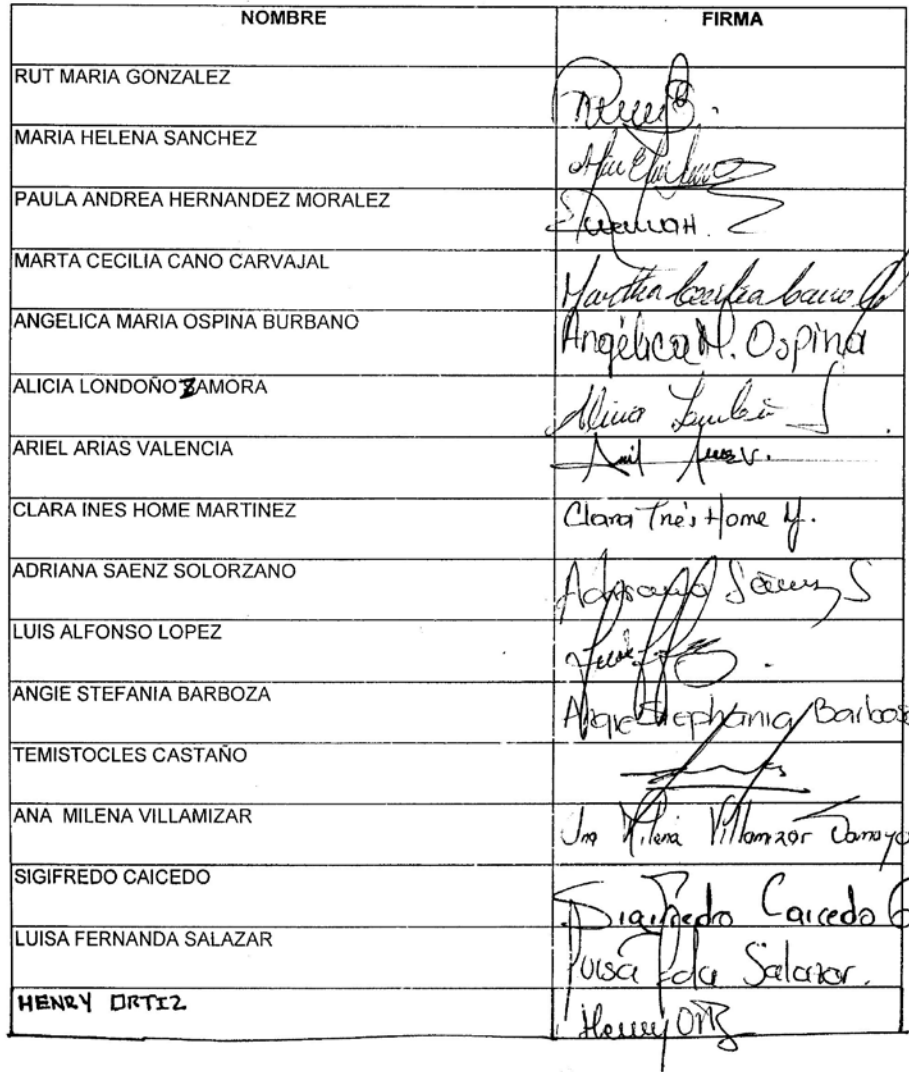 NOMBRE FIRMA
RUT MARIA GONZALEZ
MARIA HELENA SANCHEZ
PAULA ANDREA HERNANDEZ MORALEZ
MARTA CECILIA CANO CARVAJAL Martha Cecilia Cano
ANGELICA MARIA OSPINA BURBANO Angélica M. Ospina
ALICIA LONDOÑO ZAMORA
ARIEL ARIAS VALENCIA
CLARA INES HOME MARTINEZ Clara Inés Home M.
ADRIANA SAENZ SOLORZANO Adriana Sáenz S
LUIS ALFONSO LOPEZ
ANGIE STEFANIA BARBOZA Angie Stephania Barbosa
TEMISTOCLES CASTAÑO
ANA MILENA VILLAMIZAR Ana Milena Villamizar
SIGIFREDO CAICEDO Sigifredo Caicedo
LUISA FERNANDA SALAZAR Luisa Fda Salazar.
HENRY ORTIZ Henry